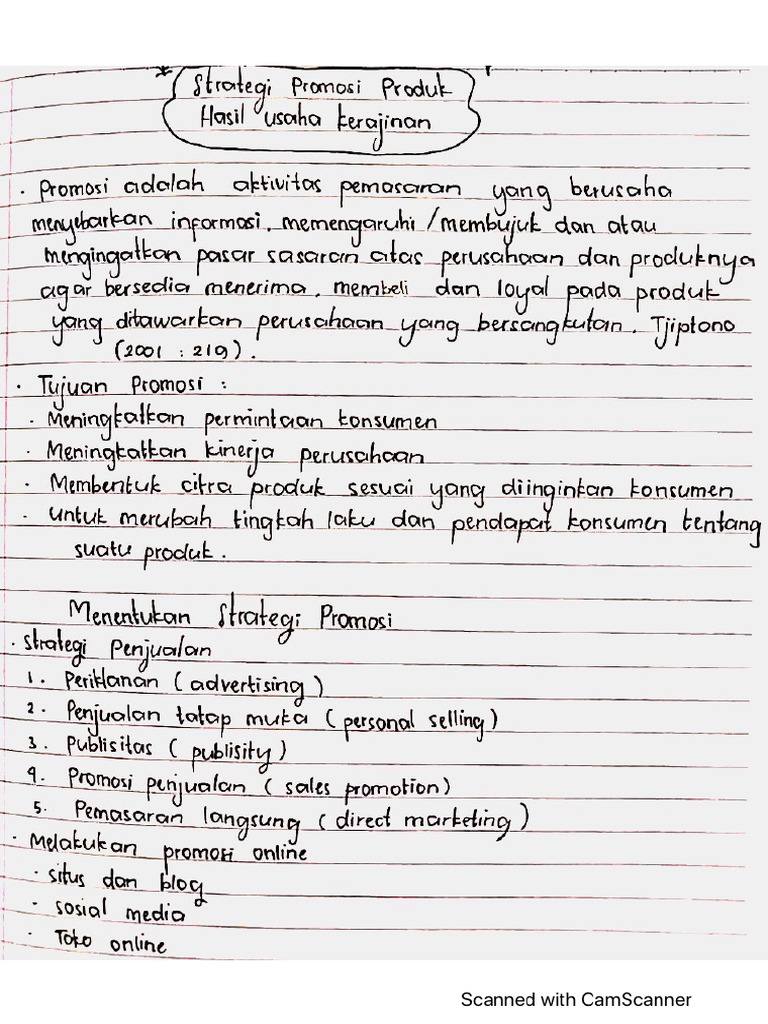 * Strategi Promosi Produk
Hasil usaha kerajinan
. Promosi adalah aktivitas pemasaran yang berusaha
menyebarkan informasi, memengaruhi / membujuk dan atau
mengingatkan pasar sasaran atas perusahaan dan produknya
agar bersedia menerima, membeli dan loyal pada produk
yang ditawarkan perusahaan yang bersangkutan. Tjiptono
(2001 : 219).
. Tujuan Promosi :
. Meningkatkan permintaan konsumen
. Meningkatkan kinerja perusahaan
. Membentuk citra produk sesuai yang diinginkan konsumen
. Untuk merubah tingkah laku dan pendapat konsumen tentang
suatu produk.
Menentukan Strategi Promosi
. Strategi Penjualan
1. Periklanan (advertising)
2. Penjualan tatap muka (personal selling)
3. Publisitas (publisity)
4. Promosi penjualan (sales promotion)
5. Pemasaran langsung (direct marketing)
. Melakukan promosi online
. situs dan blog
. sosial media
. Toko online
Scanned with CamScanner